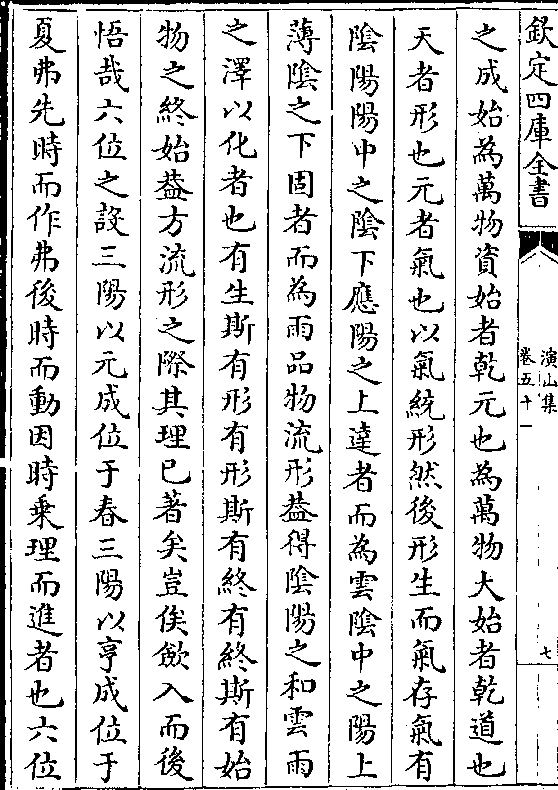 欽定四庫全書
演山集
卷五十一
七
之成始為萬物資始者乾元也為萬物大始者乾道也
天者形也元者氣也以氣統形然後形生而氣存氣有
陰陽陽中之陰下應陽之上達者而為雲陰中之陽上
薄陰之下固者而為雨品物流形葢得陰陽之和雲雨
之澤以化者也有生斯有形有形斯有終有終斯有始
物之終始葢方流形之際其理已著矣豈俟歛入而後
悟哉六位之設三陽以元成位于春三陽以亨成位于
夏弗先時而作弗後時而動因時乗理而進者也六位